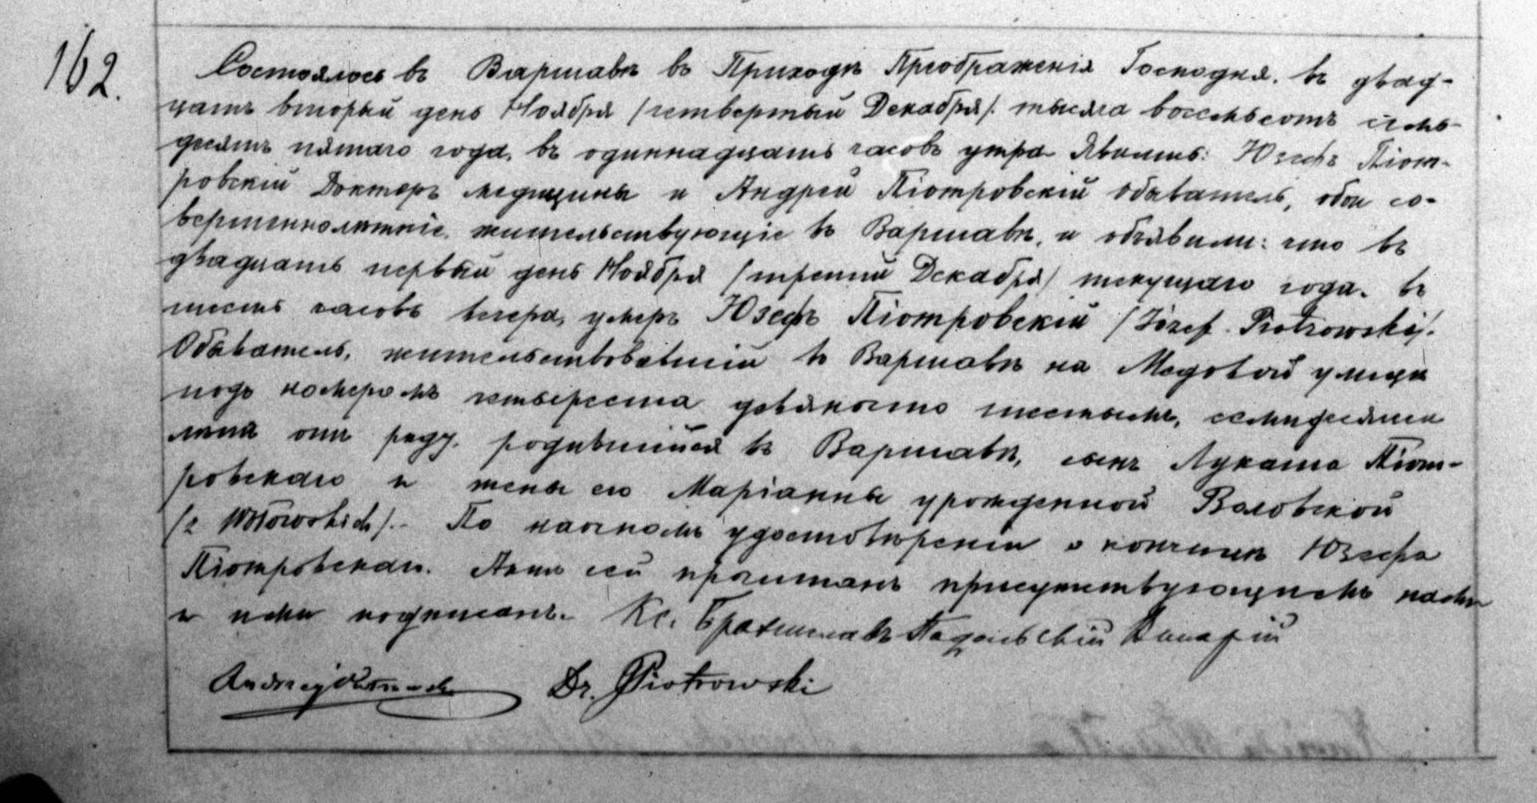 162.
Состоялось въ Варшавѣ въ Приходѣ Преображенія Господня. въ двад-
цать вторый день Ноября /четвертый Декабря/. тысяча восемьсотъ семь-
десятъ пятаго года, въ одиннадцать часовъ утра Явились: Юзефъ Піот-
ровскій Докторъ медицины и Андрей Піотровскій Обыватель, обои со-
вершеннолѣтніе. жительствующіе въ Варшавѣ, и объявили: что въ
двадцать первый день Ноября /третій Декабря/ текущаго года. въ
шесть часовъ вечера, умеръ Юзефъ Піотровскій /Józef Piotrowski/.
Обыватель, жительствовавшій въ Варшавѣ на Медовой улицѣ
подъ номеромъ четыреста девяносто шестымъ, семидесяти
лѣтъ отъ роду. родившійся въ Варшавѣ, сынъ Лукаша Піот-
ровскаго и жены его Маріанны урожденной Воловской
/z Wołowskich/.- По наочномъ удостовѣреніи о кончинѣ Юзефа
Піотровскаго. Актъ сей прочитанъ присутствующимъ нами
и ими подписанъ. Кс. Брониславъ Подольскій Викарій
Andrzej Piotrowski Dr. JPiotrowski